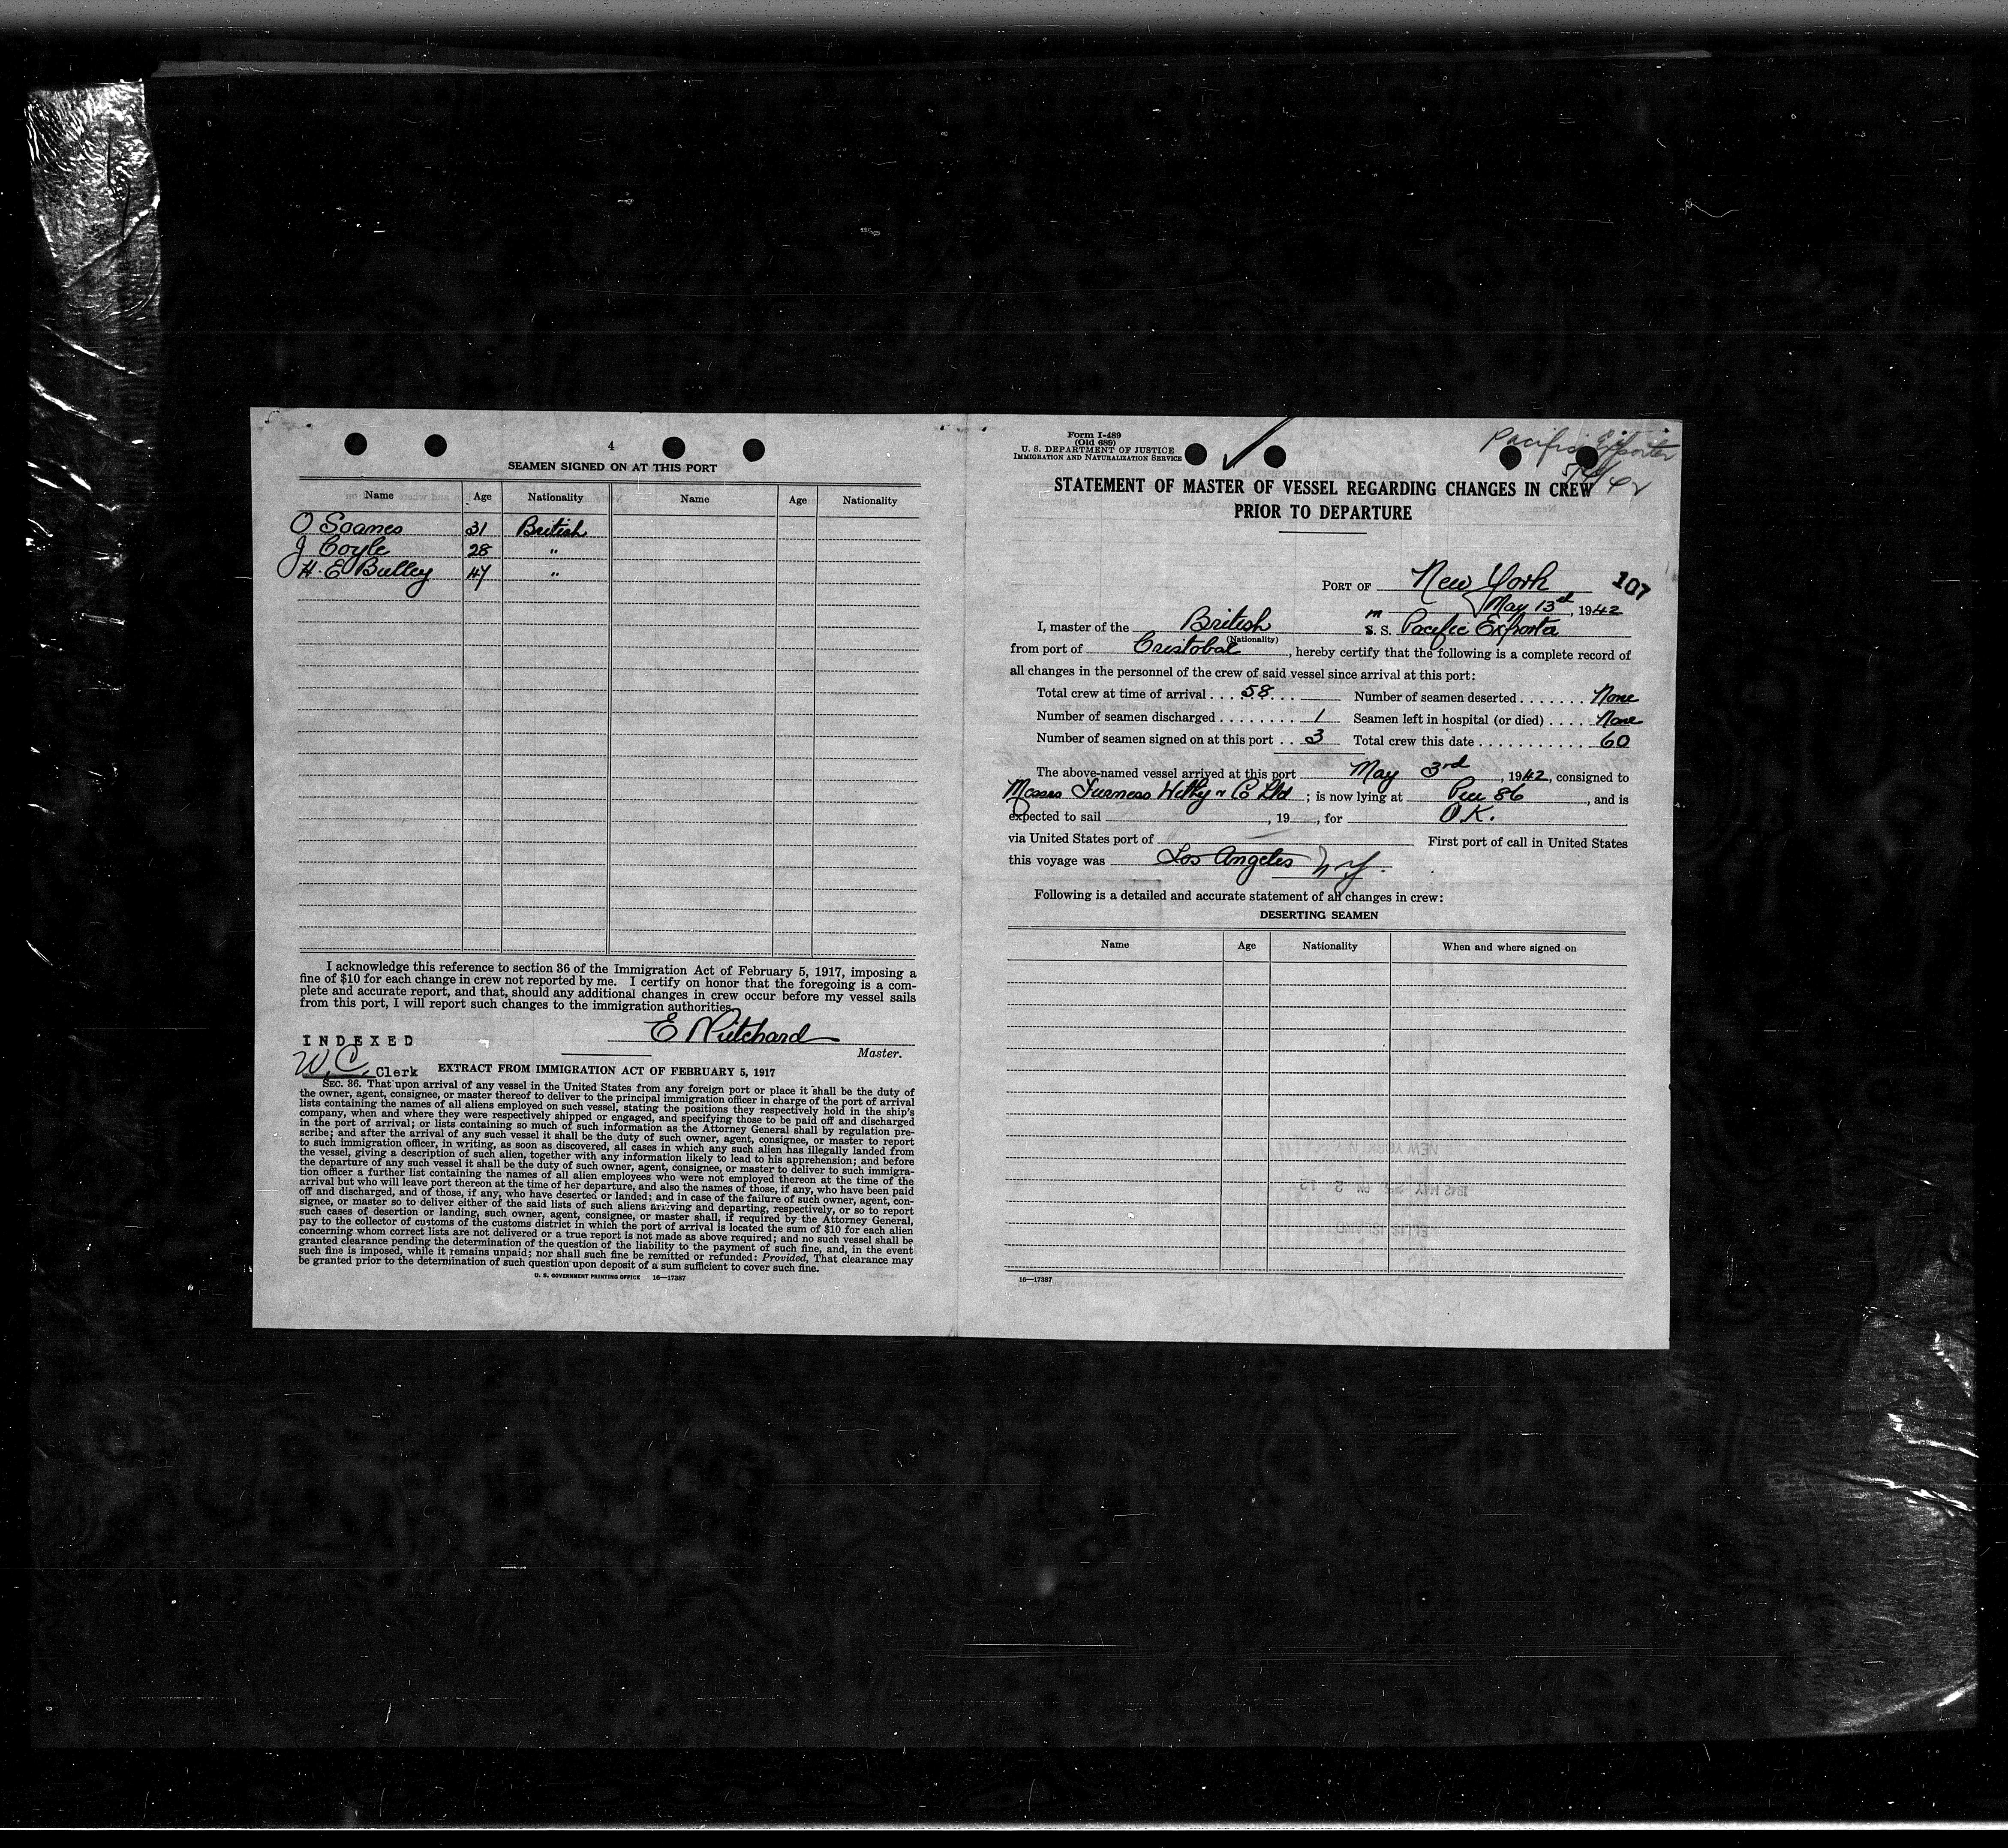 4
SEAMEN SIGNED ON AT THIS PORT
Name Age Nationality Name Age Nationality
O Soames 31 British
J Coyle 28 "
H. E Bulley 47 "
I acknowledge this reference to section 36 of the Immigration Act of February 5, 1917, imposing a
fine of $10 for each change in crew not reported by me. I certify on honor that the foregoing is a com-
plete and accurate report, and that, should any additional changes in crew occur before my vessel sails
from this port, I will report such changes to the immigration authorities.
E Pritchard
INDEXED
Master.
W.C. Clerk
EXTRACT FROM IMMIGRATION ACT OF FEBRUARY 5, 1917
SEC. 36. That upon arrival of any vessel in the United States from any foreign port or place it shall be the duty of
the owner, agent, consignee, or master thereof to deliver to the principal immigration officer in charge of the port of arrival
lists containing the names of all aliens employed on such vessel, stating the positions they respectively hold in the ship's
company, when and where they were respectively shipped or engaged, and specifying those to be paid off and discharged
in the port of arrival; or lists containing so much of such information as the Attorney General shall by regulation pre-
scribe; and after the arrival of any such vessel it shall be the duty of such owner, agent, consignee, or master to report
to such immigration officer, in writing, as soon as discovered, all cases in which any such alien has illegally landed from
the vessel, giving a description of such alien, together with any information likely to lead to his apprehension; and before
the departure of any such vessel it shall be the duty of such owner, agent, consignee, or master to deliver to such immigra-
tion officer a further list containing the names of all alien employees who were not employed thereon at the time of the
arrival but who will leave port thereon at the time of her departure, and also the names of those, if any, who have been paid
off and discharged, and of those, if any, who have deserted or landed; and in case of the failure of such owner, agent, con-
signee, or master so to deliver either of the said lists of such aliens arriving and departing, respectively, or so to report
such cases of desertion or landing, such owner, agent, consignee, or master shall, if required by the Attorney General,
pay to the collector of customs of the customs district in which the port of arrival is located the sum of $10 for each alien
concerning whom correct lists are not delivered or a true report is not made as above required; and no such vessel shall be
granted clearance pending the determination of the question of the liability to the payment of such fine, and, in the event
such fine is imposed, while it remains unpaid; nor shall such fine be remitted or refunded: Provided, That clearance may
be granted prior to the determination of such question upon deposit of a sum sufficient to cover such fine.
U. S. GOVERNMENT PRINTING OFFICE 16—17387
Form I-489
(Old 689)
U. S. DEPARTMENT OF JUSTICE
IMMIGRATION AND NATURALIZATION SERVICE
Pacific Exporter
STATEMENT OF MASTER OF VESSEL REGARDING CHANGES IN CREW
PRIOR TO DEPARTURE
PORT OF New York 107
May 13th, 1942
I, master of the British m S. S. Pacific Exporter
(Nationality)
from port of Cristobal, hereby certify that the following is a complete record of
all changes in the personnel of the crew of said vessel since arrival at this port:
Total crew at time of arrival . . . 58 Number of seamen deserted . . . . . . . None
Number of seamen discharged . . . . . . . . 1 Seamen left in hospital (or died) . . . . None
Number of seamen signed on at this port . . 3 Total crew this date . . . . . . . . . . . . 60
The above-named vessel arrived at this port May 3rd, 1942, consigned to
Messrs Furness Withy & Co Ltd ; is now lying at Pier 86, and is
expected to sail , 19 , for U.K.
via United States port of First port of call in United States
this voyage was Los Angeles N.Y.
Following is a detailed and accurate statement of all changes in crew:
DESERTING SEAMEN
Name Age Nationality When and where signed on
16—17387